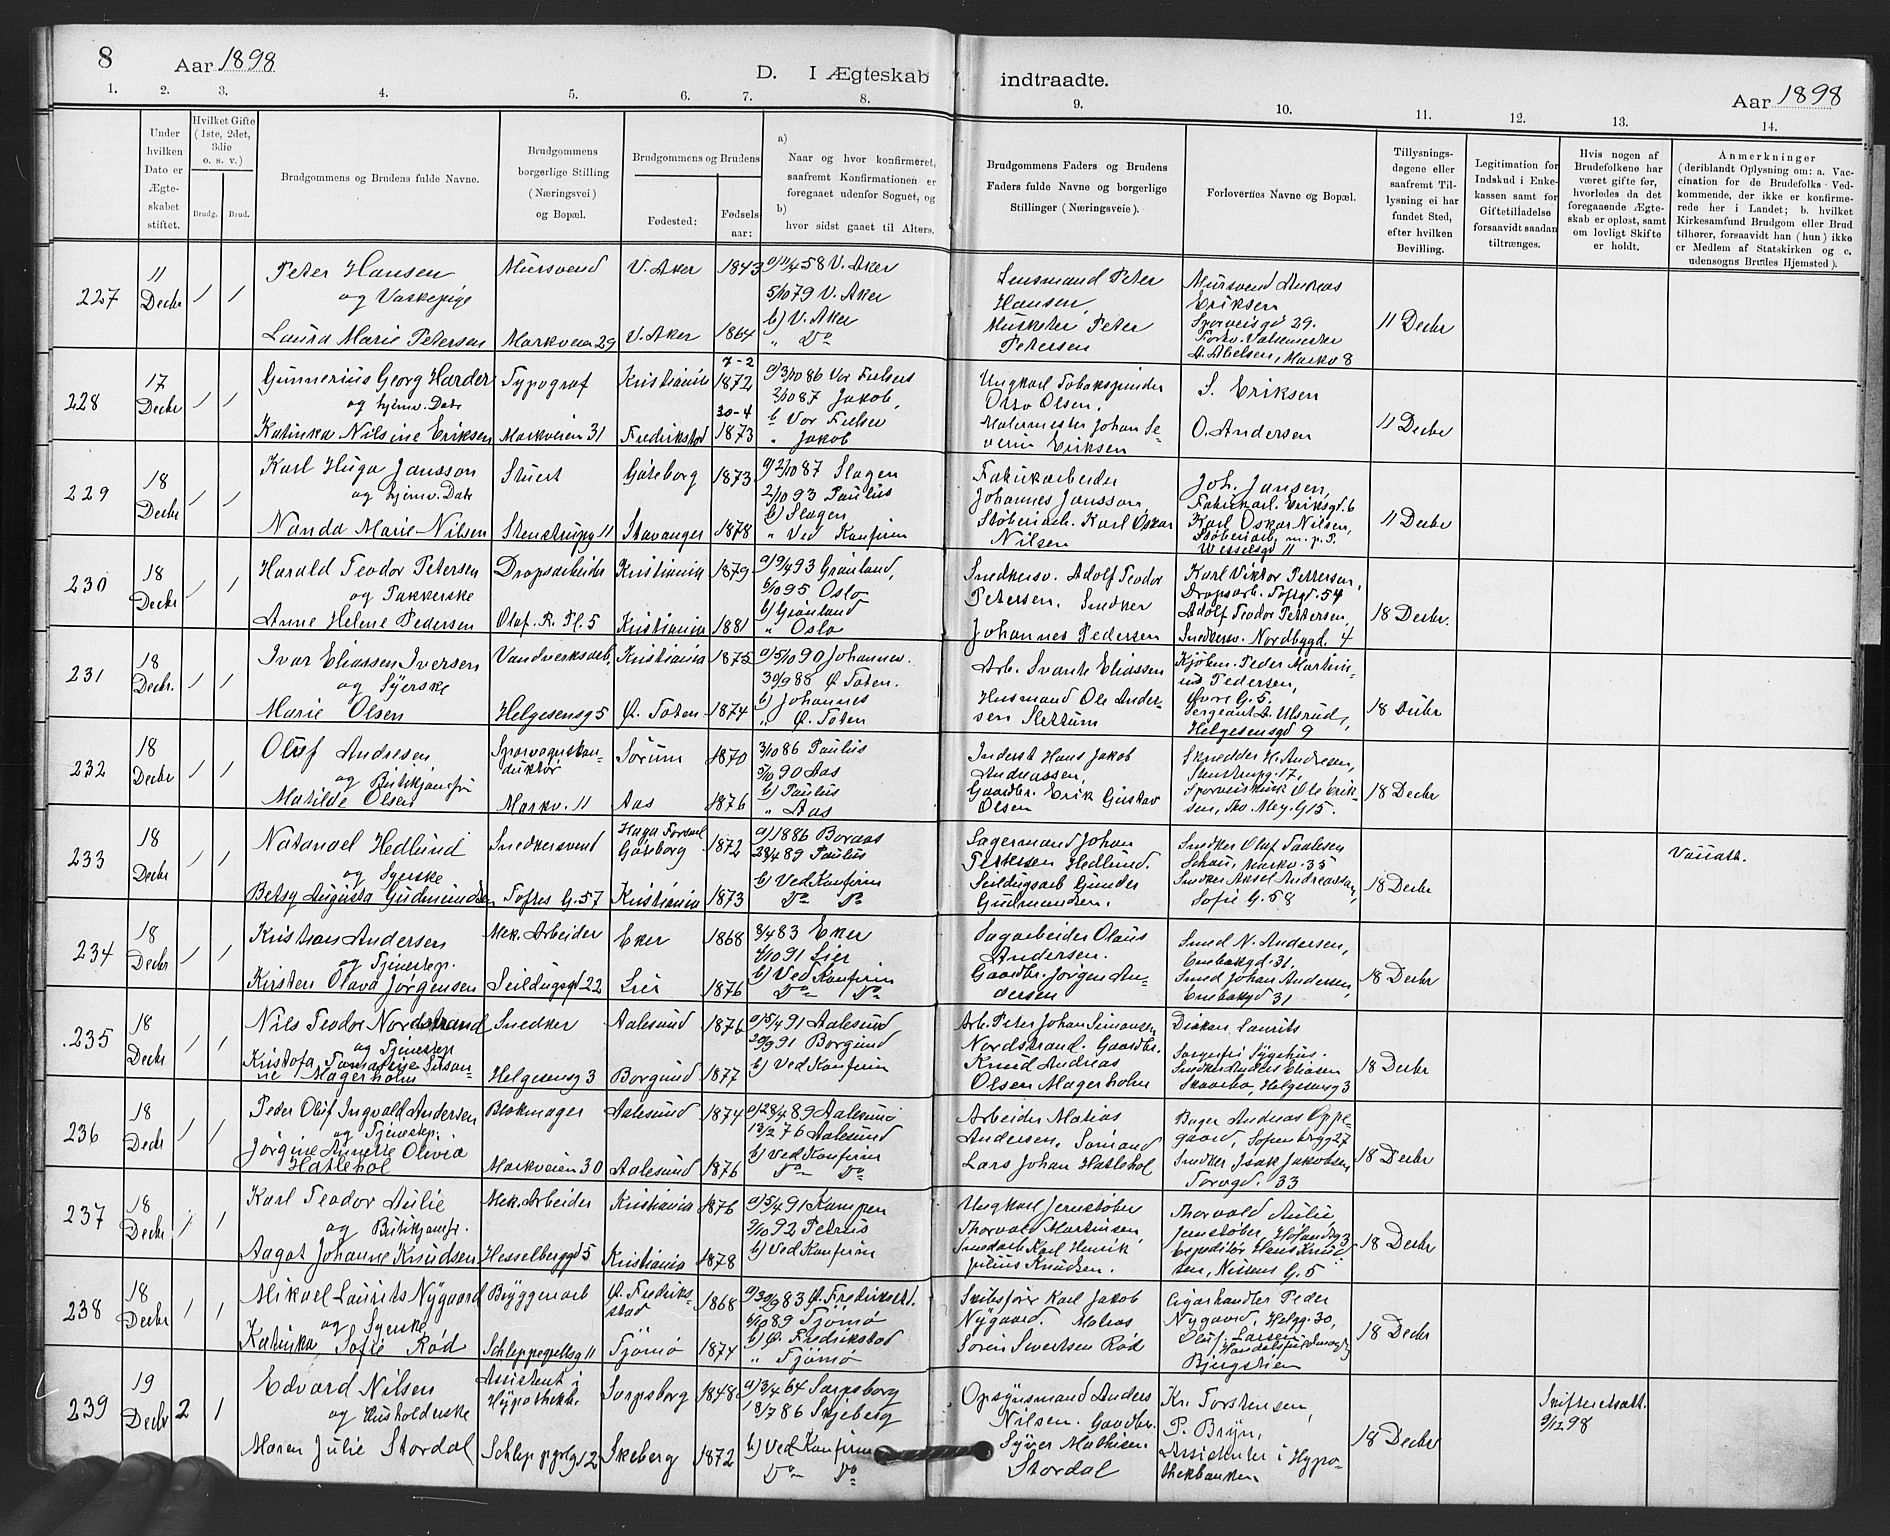 8
Aar 1898
D. I Ægteskab
indtraadte.
Aar 1898
1. 2. 3. 4. 5. 6. 7. 8. 9. 10. 11. 12. 13. 14.
Under hvilken Dato er Ægteskabet stiftet.
Hvilket Gifte (1ste, 2det, 3die o. s. v.)
Brudg. Brud.
Brudgommens og Brudens fulde Navne.
Brudgommens borgerlige Stilling (Næringsvei) og Bopæl.
Brudgommens og Brudens
Fødested: Fødselsaar:
a) Naar og hvor konfirmeret, saafremt Konfirmationen er foregaaet udenfor Sognet, og
b) hvor sidst gaaet til Alters.
Brudgommens Faders og Brudens Faders fulde Navne og borgerlige Stillinger (Næringsveie).
Forlovernes Navne og Bopæl.
Tillysningsdagene eller saafremt Tillysning ei har fundet Sted, efter hvilken Bevilling.
Legitimation for Indskud i Enkekassen samt for Giftetilladelse forsaavidt saadan tiltrænges.
Hvis nogen af Brudefolkene har været gifte før, hvorledes da det foregaaende Ægteskab er opløst, samt om lovligt Skifte er holdt.
Anmerkninger (deriblandt Oplysning om: a. Vaccination for de Brudefolks Vedkommende, der ikke er konfirmerede her i Landet; b. hvilket Kirkesamfund Brudgom eller Brud tilhører, forsaavidt han (hun) ikke er Medlem af Statskirken og c. udensogns Brudes Hjemsted).
227 11 Decbr 1 1 Peter Hansen og Vaskepige Mursvend V. Aker 1843 a) 11/4 58 V. Aker Lensmand Peter Hansen, Mursvend Andreas Eriksen Sporveisgd 29. 11 Decbr
Laura Marie Petersen Markveien 29 V. Aker 1864 5/10 79 V. Aker b) V. Aker " Do Musketer Peter Petersen A. Abelsen, Markv 8
228 17 Decbr 1 1 Gunnerius Georg Harder og hjemv. Datr Typograf Kristiania 7-2 1872 a) 3/10 86 Vor Frelsers Ungkarl Tobakspinder Otto Olsen. S. Eriksen 11 Decbr
Katinka Nilsine Eriksen Markveien 31 Fredrikstad 30-4 1873 2/10 87 Jakob, b Vor Frelser " Jakob Malermester Johan Severin Eriksen O. Andersen
229 18 Decbr 1 1 Karl Hugo Jansson og hjemv. Datr Stuert Göteborg 1873 a) 2/10 87 Slagen Fabrikarbeider Johannes Jansson, Joh. Jansen, Fabrikarb. Eriksgd. 6 11 Decbr
Nanda Marie Nilsen Stenstrupg 11 Stavanger 1878 2/10 93 Paulus b) Slagen " Ved Konfirm Støberiarb. Karl Oskar Nilsen Karl Oskar Nilsen, Støberiarb. m. p. T. Wesselsgd 11
230 18 Decbr 1 1 Harald Teodor Petersen og Pakkerske Dropsarbeider Kristiania 1879 a) 9/4 93 Grønland, Snedkersv. Adolf Teodor Petersen. Karl Viktor Pettersen, Dropsarb. Toftgd. 54 18 Decbr.
Anne Helene Pedersen Olaf. R. Pl. 5 Kristiania 1881 6/10 95 Oslo b) Grønland " Oslo Snedker Johannes Pedersen Adolf Teodor Pettersen, Snedkersv. Nordbygd. 4
231 18 Decbr. 1 1 Ivar Eliassen Iversen og Syerske Vandverksarb. Kristiania 1875 a) 5/10 90 Johannes. Arb. Svante Eliassen Kjøkm. Peder Martinius Pedersen, Øvre G. 5. 18 Decbr
Marie Olsen Helgesensg 5 Ø. Toten 1874 30/9 88 Ø. Toten. b) Johannes " Ø. Toten Husmand Ole Andersen Slettum Sergeant A. Ulsrud, Helgesensgd 9
232 18 Decbr 1 1 Oluf Andresen og Butikjomfru Sporvognskonduktør Sørum 1870 3/10 86 Paulus Inderst Hans Jakob Andreassen, Skredder H. Andresen, Stenstrupg. 17. 18 Decbr
Matilde Olsen Markv. 11 Aas 1876 5/10 90 Aas b) Paulus " Aas Gaardbr. Erik Gustav Olsen Ole Eriksen, Ths. Mey. G 15.
233 18 Decbr 1 1 Natanael Hedlund og Syerske Snedkersvend Göteborg 1872 a) 1886 Boraas Sagermand Johan Pettersen Hedlund. Snedker Oluf Paulsen Schau, Markv. 35 18 Decbr Vaxatt.
Betsy Augusta Gudmundsen Toftes G. 57 Kristiania 1873 28/4 89 Paulus b) Ved Konfirm Do Do Seildugsarb Gunder Gudmundsen. Snedker Aksel Andreassen, Sofie G. 58
234 18 Decbr 1 1 Kristian Andersen og Tjenestep. Mek. Arbeider Eker 1868 8/4 83 Eker Sagarbeider Olaus Andersen. Smed N. Andersen, Enebakgd. 31. 18 Decbr
Kirsten Olava Jørgensen Seildugsgd 22 Lier 1876 4/10 91 Lier b) Ved Konfirm Do Do Gaardbr. Jørgen Andersen Smed Johan Andersen, Enebakgd 31
235 18 Decbr 1 1 Nils Teodor Nordstrand og Tjenestep Snedker Aalesund 1876 a) 5/4 91 Aalesund Arb. Peter Johan Simonsen Nordstrand. Diakon Laurits Sorgenfri Sygehus. 18 Decbr
Magerholm Helgesensg 3 Borgund 1877 20/9 91 Borgund b) Ved Konfirm Gaardbr. Knud Andreas Olsen Magerholm Snedker Anders Eliasen Skaarbø, Helgesensg 3
236 18 Decbr 1 1 Peder Oluf Ingvald Andersen og Tjenestep. Blokmager Aalesund 1874 a) 28/4 89 Aalesund Arbeider Matias Andersen. Bager Andreas Oppegaard, Sofienbrygg 27 18 Decbr
Jørgine Annette Olivia Hatlehol Markveien 30 Aalesund 1876 Aalesund b) Ved Konfirm Do Do Sømand Lars Johan Hatlehol Snedker Isak Jakobsen Torvgd. 33
237 18 Decbr 1 1 Karl Teodor Aulie og Butikjomfr. Mek. Arbeider Kristiania 1876 a) 5/4 91 Kampen Ungkarl Jernstøber Thorvald Martinsen, Thorvald Aulie Jernstøber, 18 Decbr
Aagot Johanne Knudsen Hesselberggd 5 Kristiania 1878 2/10 92 Petrus b) Ved Konfirm Smedarb Karl Henrik Julius Knudsen. Expeditør Hans Knudsen, Nilsens G. 5
238 18 Decbr 1 1 Mikael Laurits Nygaard og Syerske Bryggeriarb Ø. Fredrikstad 1868 a) 30/9 83 Ø. Fredrikst. Skibsfører Karl Jakob Nygaard. Cigarhandler Peder Nygaard, Helgg. 30, 18 Decbr
Katinka Sofie Rød Schleppegrellsg 11 Tjømø 1874 6/10 89 Tjømø b) Ø. Fredrikstad " Tjømø Matros Søren Sivertsen Rød Oluf Larsen Bjergstien
239 19 Decbr 2 1 Edvard Nilsen og Husholderske Assistent i Hypothekb. Sarpsborg 1848 a) 3/4 64 Sarpsborg Opsynsmand Anders Nilsen. Kr. Torstensen, 18 Decbr Skifteretsatt. 9/12 98
Maren Julie Stordal Schleppgrlg 12 Skeberg 1872 18/7 86 Skjeberg b) Ved Konfirm Do Do Gaardbr. Syver Mathisen Stordal P. Bryn, Assistenter i Hypothekbanken